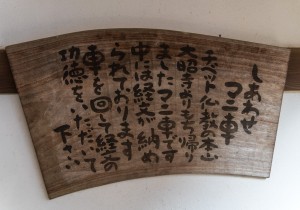 しあわせ
マニ車
チベット仏教の本山
大昭寺よりもち帰り
ましたマニ車です
中には経文が納め
られております
車を回して経文の
功徳をいただいて
下さい